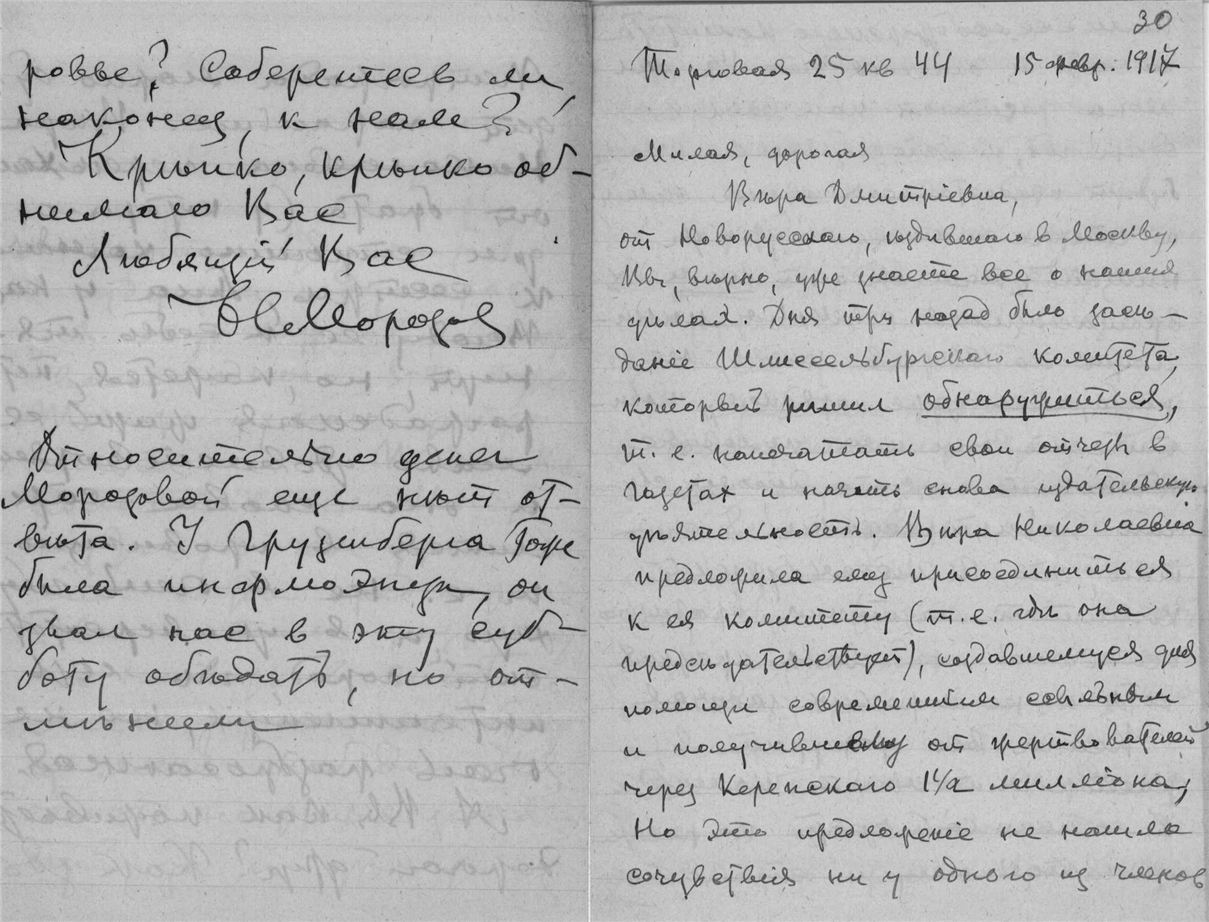 ровье? Соберетесь ли,
наконец, к нам?
Крѣпко, крѣпко об-
нимаю Вас
Любящій Вас
Н Морозов
Относительно денег
Морозовой еще нѣт от-
вѣта. У Грузенберга тоже
была инфлюэнца, он
звал нас в эту суб-
боту обѣдать, но от-
мѣнили
30
Торговая 25 кв 44 15 апр. 1917
Милая, дорогая
Вѣра Дмитріевна,
от Новорусскаго, ѣздившаго в Москву,
Вы, вѣрно, уже знаете все о наших
дѣлах. Дня три назад было засѣ-
даніе Шлиссельбургскаго комитета,
который рѣшил обнаружиться,
т. е. напечатать свои отчеты в
газетах и начать снова издательскую
дѣятельность. Вѣра Николаевна
предложила ему присоединиться
к ея комитету (т. е. гдѣ она
предсѣдательствует), создавшемуся для
помощи современным ссыльным
и получившему от жертвователей
через Керенскаго 1 1/2 милліона;
Но это предложеніе не нашло
сочувствія ни у одного из членов